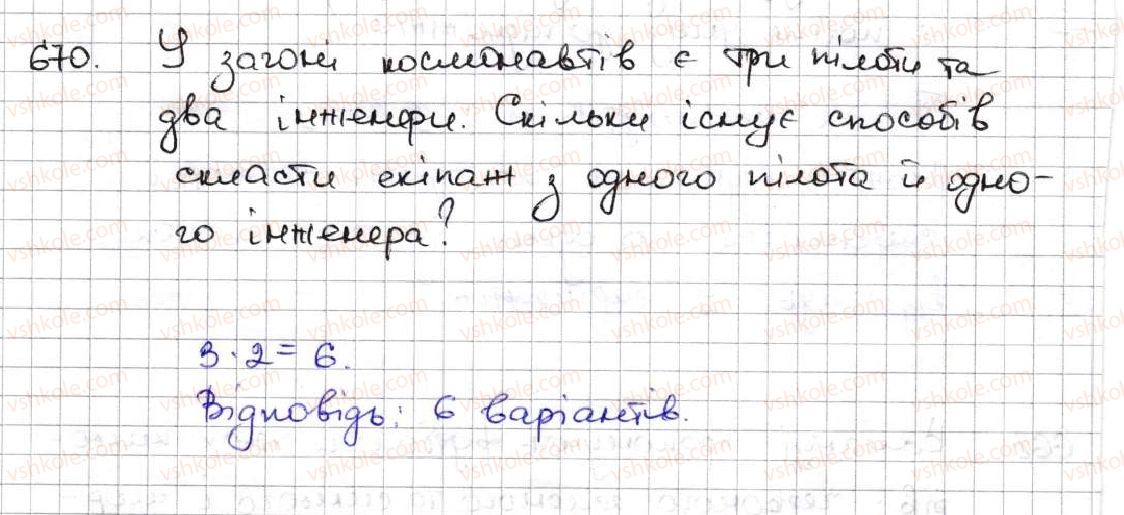 670. У загоні космонавтів є три пілоти та
два інженери. Скільки існує способів
скласти екіпаж з одного пілота й одно-
го інженера?
3 · 2 = 6.
Відповідь: 6 варіантів.